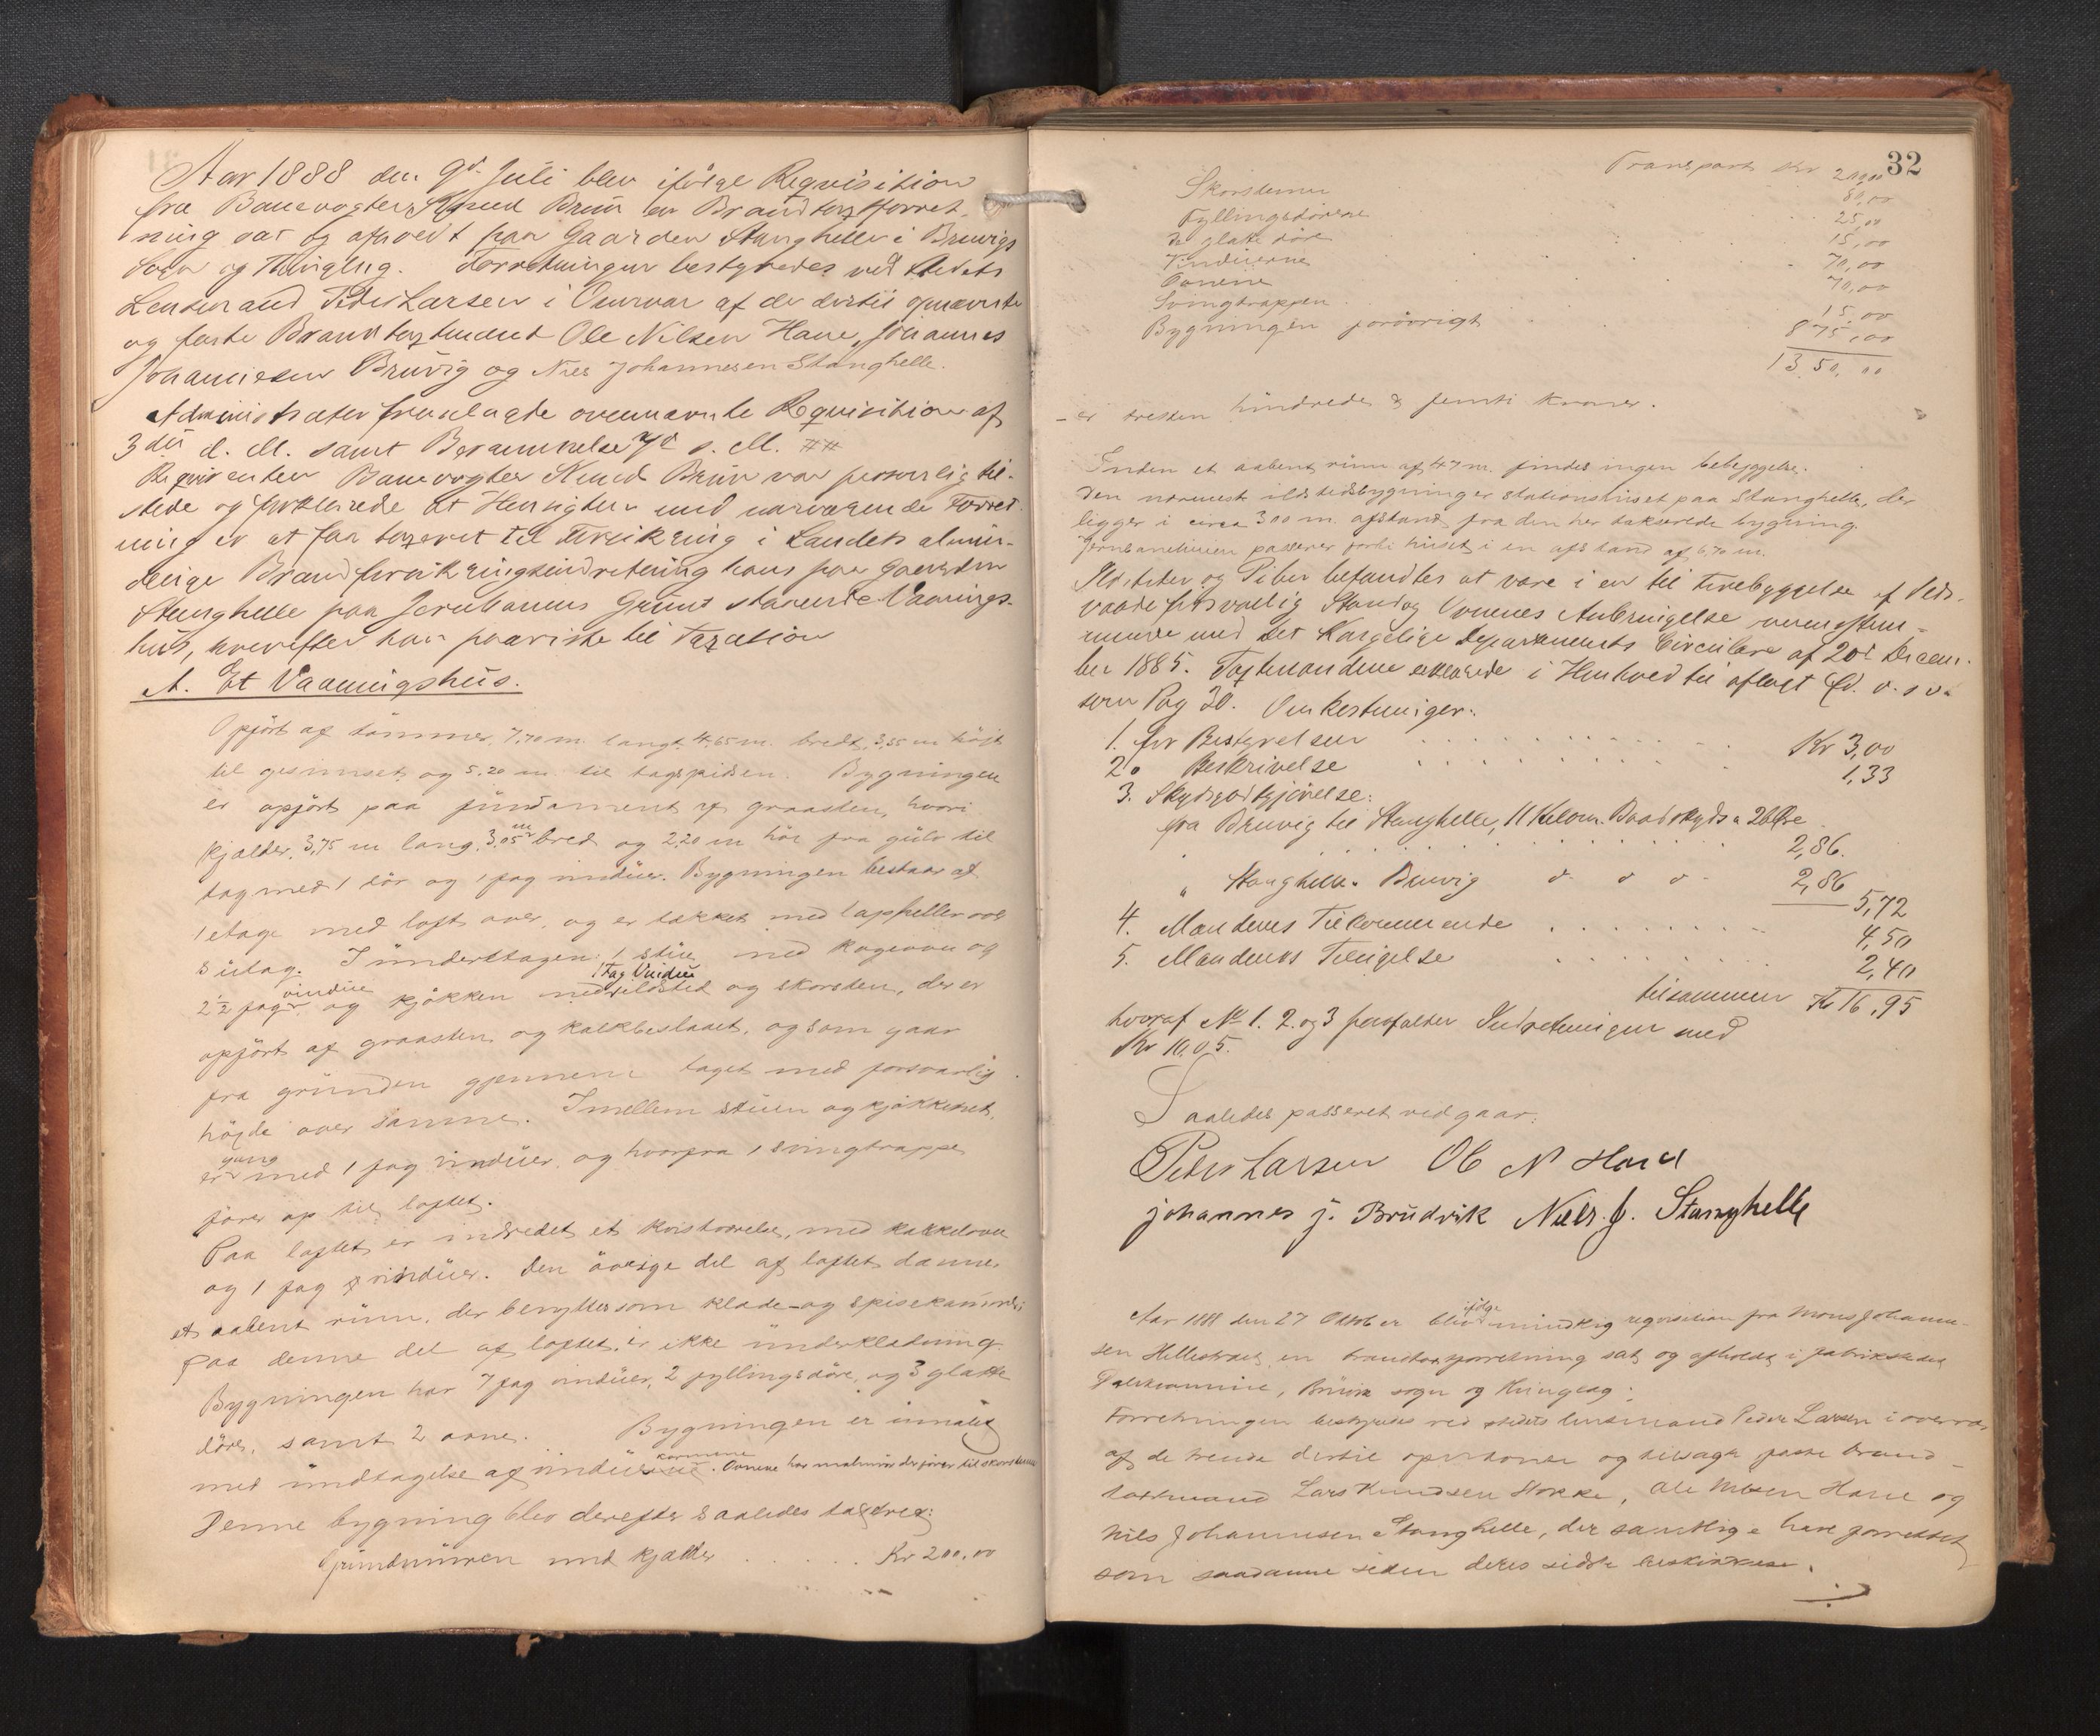 Aar 1888 den 9de Juli blev ifölge Reqvisition
fra Banevogter Knud Bruu en Brandtaxtforret-
ning sat og afholdt paa Gaarden Stanghelle i Bruvigs
Sogn og Thinglag. Forretningen bestyredes ved Stedets
Lensmand Peder Larsen i Overvær af de dertil opnævnte
og faste Brandtaxtmænd Ole Nilsen Hane, Johannes
Johannesen Bruvig og Niels Johannesen Stanghelle.
Administrator fremlagde ovennævnte Reqvisition af
3die d. M. samt Berammelse 7de s. M. ##
Reqvirenten Banevogter Knud Bruu var personlig til-
stede og forklarede at Hensigten med nærværende Forret-
ning er at faa taxeret til Forsikring i Landets almin-
delige Brandforsikringsindretning hans paa Gaarden
Stanghelle paa Jernbanens Grund staaende Vaanings-
hus, hvorefter han paaviste til Taxation
A. Et Vaaningshus.
Opfört af tömmer, 7,70 m. langt, 4,65 m. bredt, 3,55 m höit
til gesimset og 5,20 m. til tagspidsen. Bygningen
er opfört paa fundament af graasten, hvori
kjælder, 3,75 m lang, 3,05 m bred og 2,20 m höi fra gulv til
tag med 1 dör og 1 fag vinduer. Bygningen bestaar af
1 etage med loft over, og er tækket med lapheller over
sutag. I underetagen: 1 stue med kogeovn og
2½ fag vindue og kjökken med 1 Fag Vindue ildsted og skorsten, der er
opfört af graasten og kalkbeslaaet, og som gaar
fra grunden gjennem taget med forsvarlig
höide over samme. Imellem stuen og kjökkenet,
er gang med 1 fag vinduer, og hvorfra 1 svingtrappe
förer op til loftet.
Paa loftet er indredet et kvistværelse, med kakkelovn
og 1 fag vinduer. Den övrige del af loftet danner
et aabent rum, der benyttes som klæde- og spisekammer;
paa denne del af loftet er ikke underklædning.
Bygningen har 7 fag vinduer, 2 fyllingsdöre, og 3 glatte
döre, samt 2 ovne. Bygningen er umalet
med undtagelse af vindues karmene. Ovnene har rör der förer til skorstenen
Denne bygning blev derefter saaledes taxeret:
Grundmuren med kjælder . . . . . . Kr 200,00
32
Transport Kr 200,00
Skorstenen 80,00
Fyllingsdörene 25,00
De glatte döre 15,00
Vinduerne 70,00
Ovnene 70,00
Svingtrappen 15,00
Bygningen forövrigt 875,00
1350,00
- er tretten hundrede & femti kroner.
Inden et aabent rum af 47 m. findes ingen bebyggelse.
Den nærmeste ildstedsbygning er stationshuset paa Stanghelle, der
ligger i circa 300 m. afstand fra den her takserede bygning.
Jernbanelinien passerer forbi huset i en afstand af 6,70 m.
Ildsteder og Piber befandtes at være i en til Forebyggelse af Ilds-
vaade forsvarlig Stand og Ovnenes Anbringelse overenstem-
mende med det Kongelige Departements Circulære af 20de Decem-
ber 1885. Taxtmændene erklærede i Henhold til aflagt Ed. o. s. v.
som Pag 30. Omkostninger:
1. for Bestyrelsen . . . . . . . . Kr 3,00
2. Beskrivelse . . . . . . . 1,33
3. Skydsgodtgjörelse:
fra Bruvig til Stanghelle, 11 Kilom. Baadskyds a 26 Öre
2,86.
" Stanghelle - Bruvig do do do 2,86 5,72
4. Mændenes Tilkommende . . . . . . . 4,50
5. Mændenes Tilsigelse . . . . . . . 2,40
tilsammen Kr 16,95
hvoraf No 1. 2. og 3 paafalder Indretningen med
Kr 10,05.
Saaledes passeret vedgaar:
Peder Larsen Ole N Hane
johannes j. Brudvik Niels. J. Stanghelle
Aar 1888 den 27 Oktober blev ifölge mundtlig reqvisition fra Mons Johanne-
sen Hellestræt en brandtaxtforretning sat og afholdt i fabriksstedet
Dalekvamme, Bruvik sogn og thinglag;
Forretningen bestyredes ved stedets lensmand Peder Larsen i overvær
af de trende dertil og tilsagte faste brand-
taxtmænd Lars Knudsen Stokke, Ole Nilsen Hane og
Nils Johannesen Stanghelle, der samtlige have forrettet
som saadanne siden deres sidste beskikkelse.